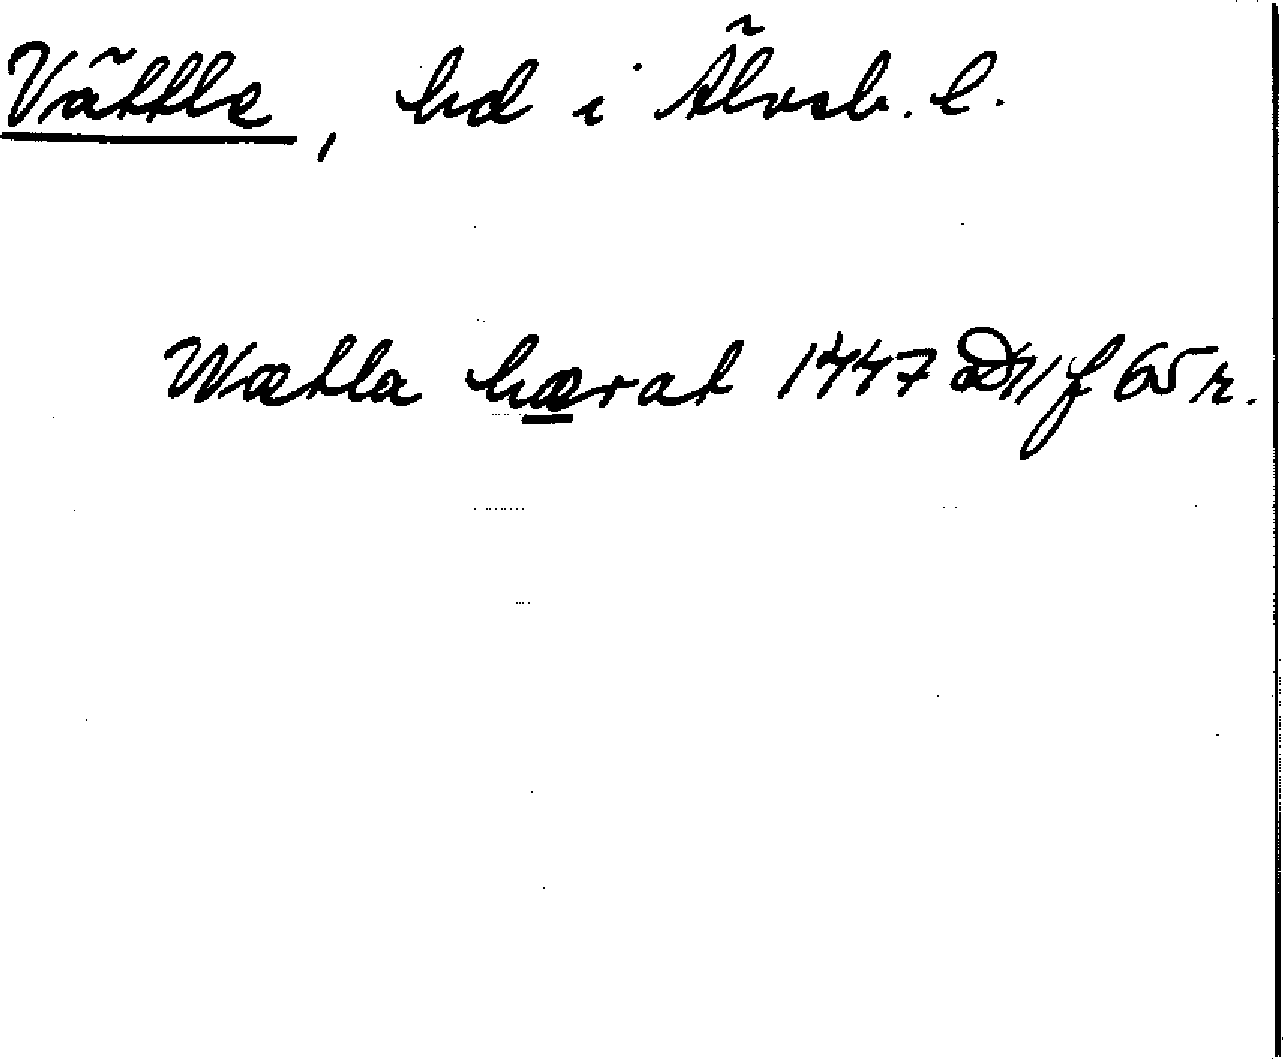 Vättle, hd i Älvsb. l.
Wætla hærat 1447 D 11 f 65 r.